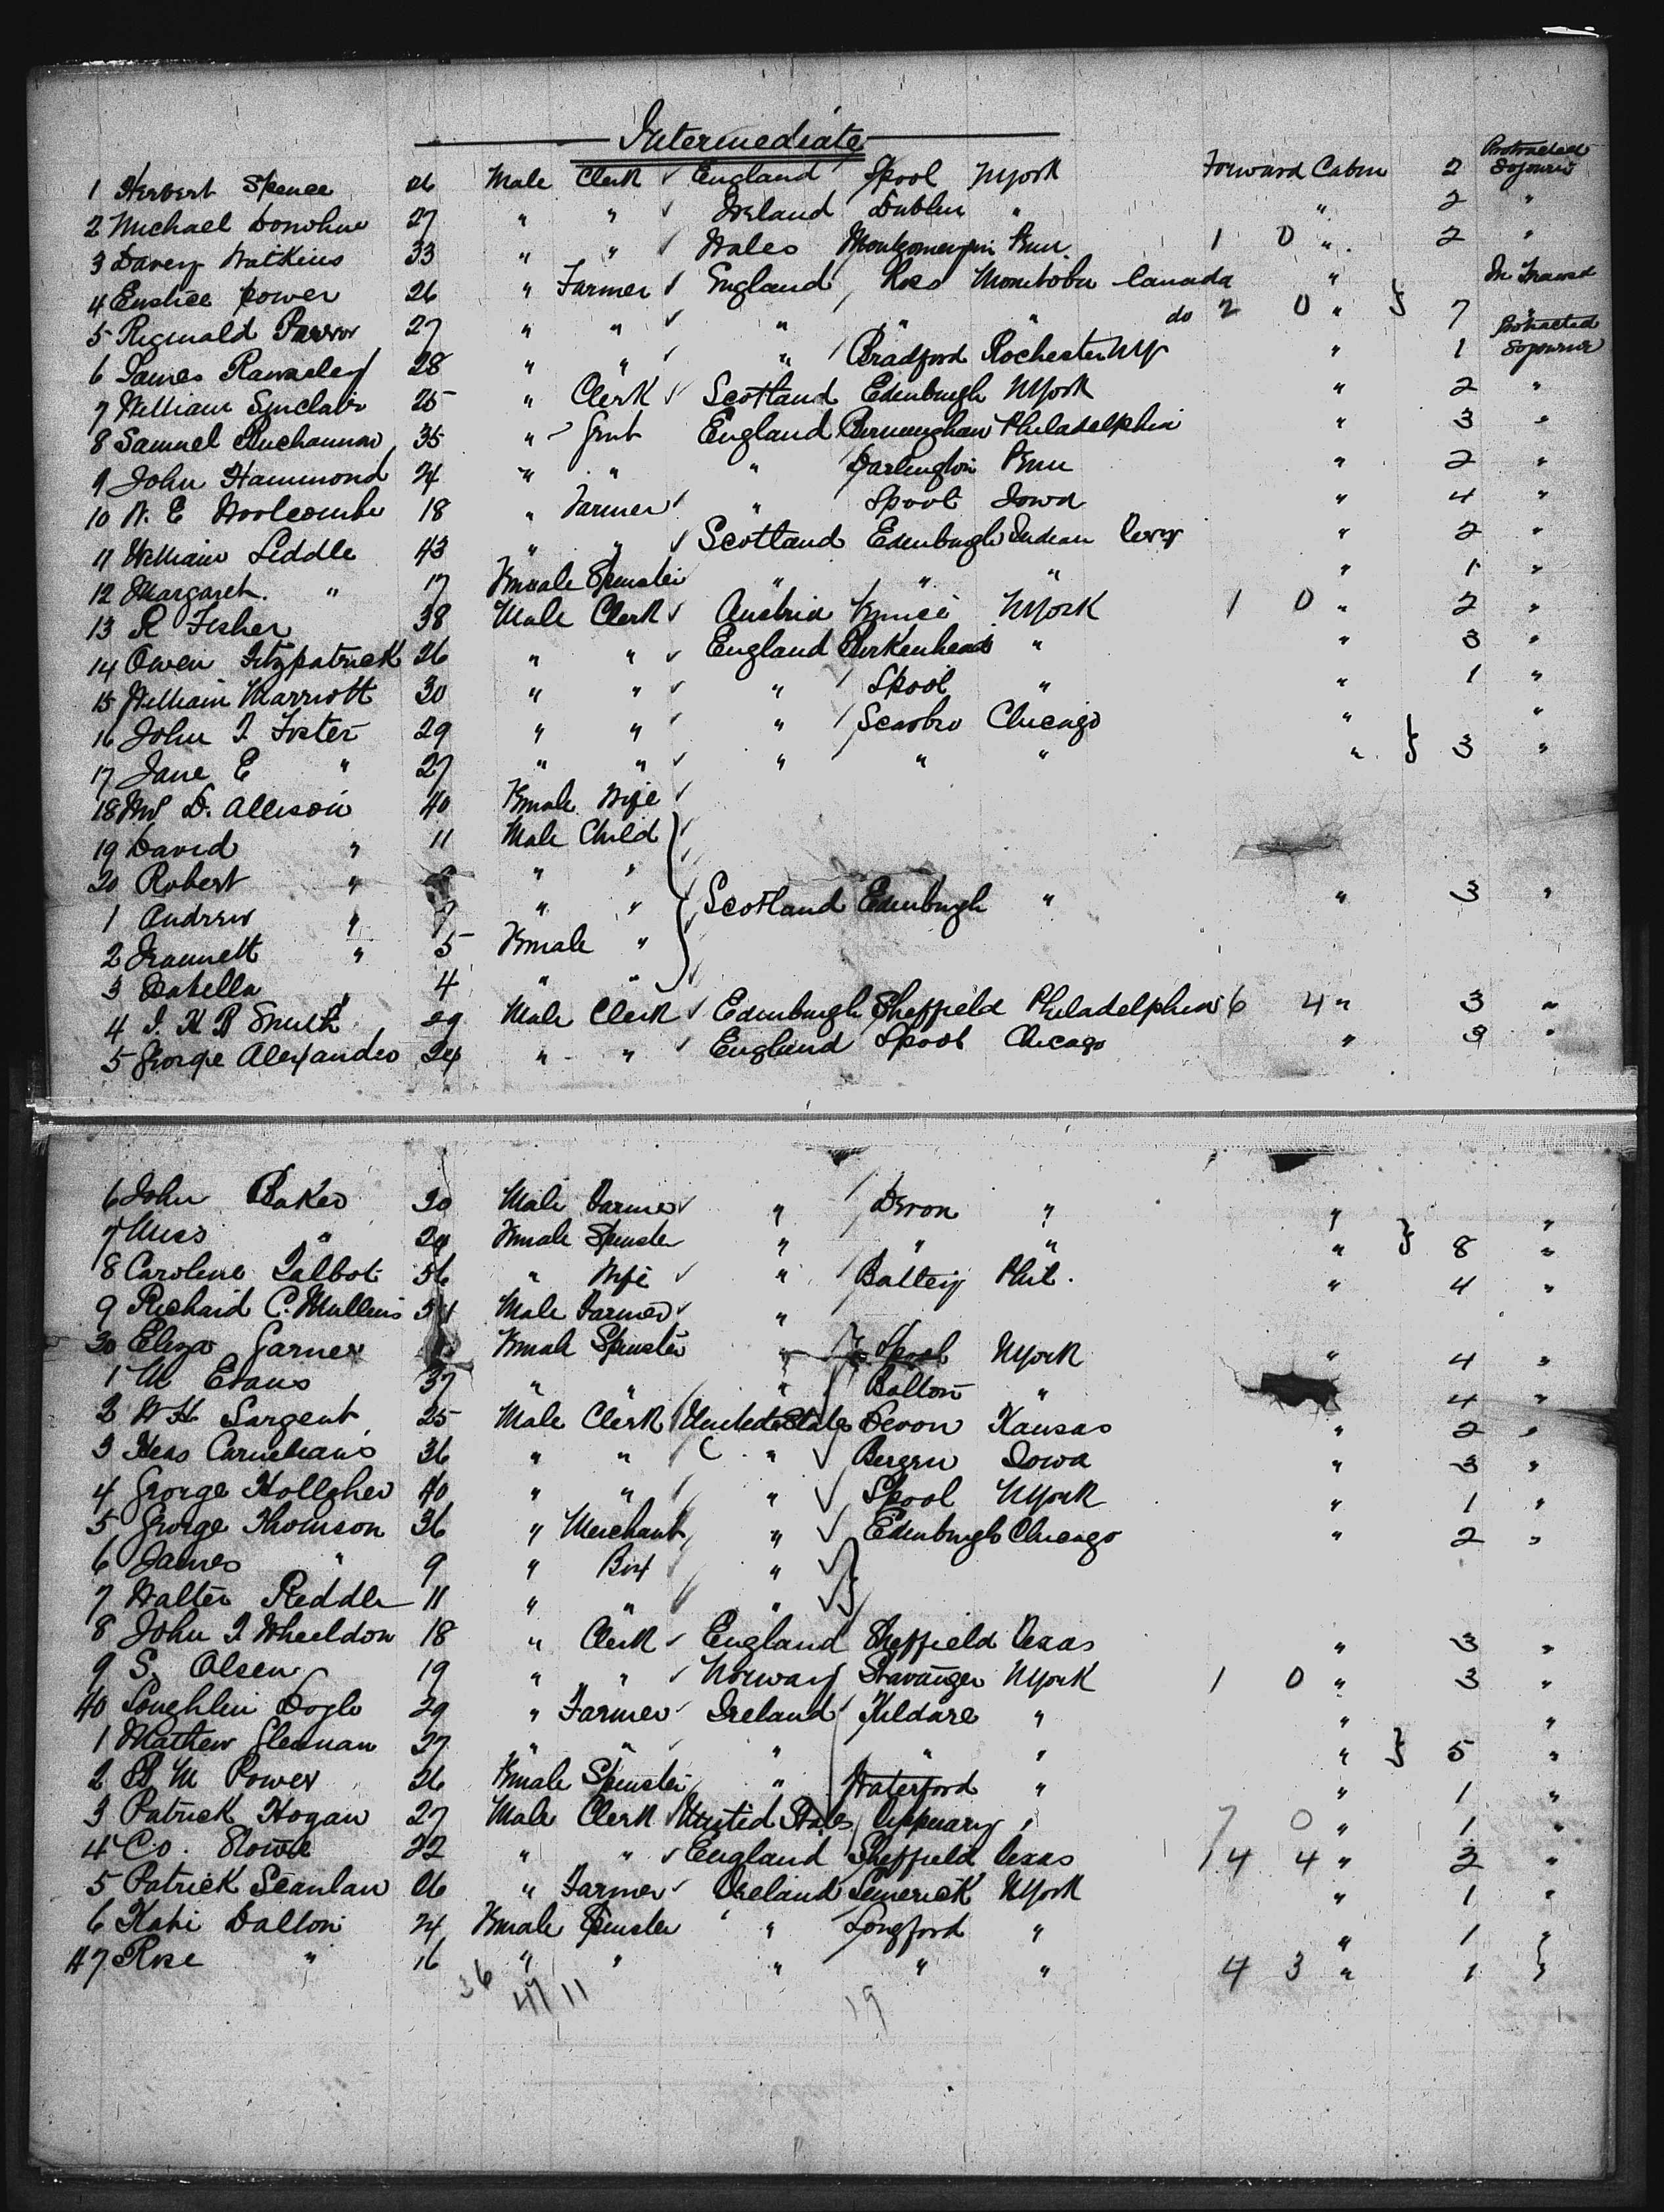 Intermediate
1 Herbert Spence 26 Male Clerk England Lpool NYork Forward Cabin 2 Protracted Sojourn
2 Michael Donohue 27 " " Ireland Dublin " " 2 "
3 Davey Watkins 33 " " Wales Penn 1 0 " 2 "
4 Power 26 " Farmer England Ross Manitoba Canada " In Transit
5 Reginald 27 " " " " " do 2 0 " } 7 "
6 James Rawnsley 28 " " " Bradford Rochester NY " 1 Protracted Sojourn
7 William Sinclair 25 " Clerk Scotland Edinburgh NYork " 2 "
8 Samuel Buchannan 35 " Gent England Birmingham Philadelphia " 3 "
9 John Hammond 24 " " " Darlington Penn " 2 "
10 W. E Woolcombe 18 " Farmer " Lpool Iowa " 4 "
11 William Liddle 43 " " Scotland Edinburgh Indian Terry " 2 "
12 Margaret " 17 Female Spinster " " " " 1 "
13 R Fisher 38 Male Clerk Austria NYork 1 0 " 2 "
14 Owen Fitzpatrick 26 " " England Birkenhead " " 3 "
15 William Marriott 30 " " " Lpool " " 1 "
16 John T Foster 29 " " " Scarbro Chicago " "
17 Jane E " 27 " " " " " " } 3 "
18 Mrs D. Allison 40 Female Wife
19 David " 11 Male Child
20 Robert " " "
1 Andrew " 7 " " Scotland Edinburgh " " 3 "
2 Jeannett " 5 Female "
3 Isabella " 4 " "
4 J. H B Smith 29 Male Clerk Edinburgh Sheffield Philadelphia 6 4 " 3 "
5 George Alexander 24 " " England Lpool Chicago " 3 "
6 John Baker 20 Male Farmer " Devon " " "
7 Miss " 20 Female Spinster " " " " } 8 "
8 Caroline Talbot 56 " Wife " Batley Phil. " 4 "
9 Richard C. Mullens 54 Male Farmer "
30 Eliza Garner Female Spinster " Lpool NYork " 4 "
1 M Evans 37 " " " Bolton " 4 "
2 W H Sargent 25 Male Clerk United States Devon Kansas " 2 "
3 Hens 36 " " " Bergen Iowa " 3 "
4 George 40 " " " Lpool NYork " 1 "
5 George Thomson 36 " Merchant " Edinburgh Chicago " 2 "
6 James " 9 " Boy "
7 Walter Reddle 11 " " "
8 John T Wheeldon 18 " Clerk England Sheffield Texas " 3 "
9 S. Olsen 19 " " Norway Stavanger NYork 1 0 " 3 "
40 Loughlin Doyle 29 " Farmer Ireland Kildare " " "
1 Mathew Glennan 27 " " " " " " } 5 "
2 B M Power 26 Female Spinster " Waterford " " 1 "
3 Patrick Hogan 27 Male Clerk United States Tipperary " 7 0 " 1 "
4 C.O. Stowe 22 " " England Sheffield Texas 14 4 " 2 "
5 Patrick Scanlan 26 " Farmer Ireland Limerick NYork " 1 "
6 Kate Dalton 24 Female Spinster " Longford " " 1 "
47 Rose " 16 " " " " " 4 3 " 1 "
36 47 11 19